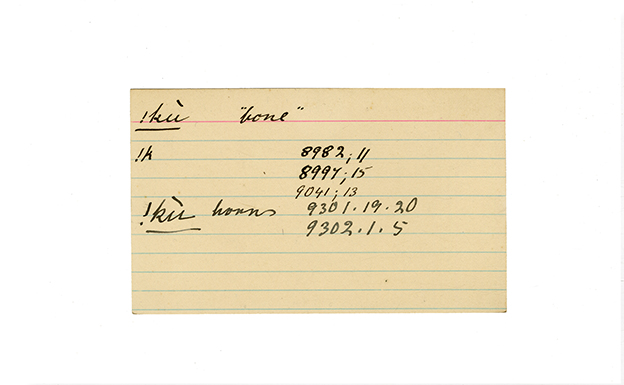 !kù "bone"
!k 8982; 11
8997; 15
9041; 13
!kù horns 9301.19.20
9302.1.5